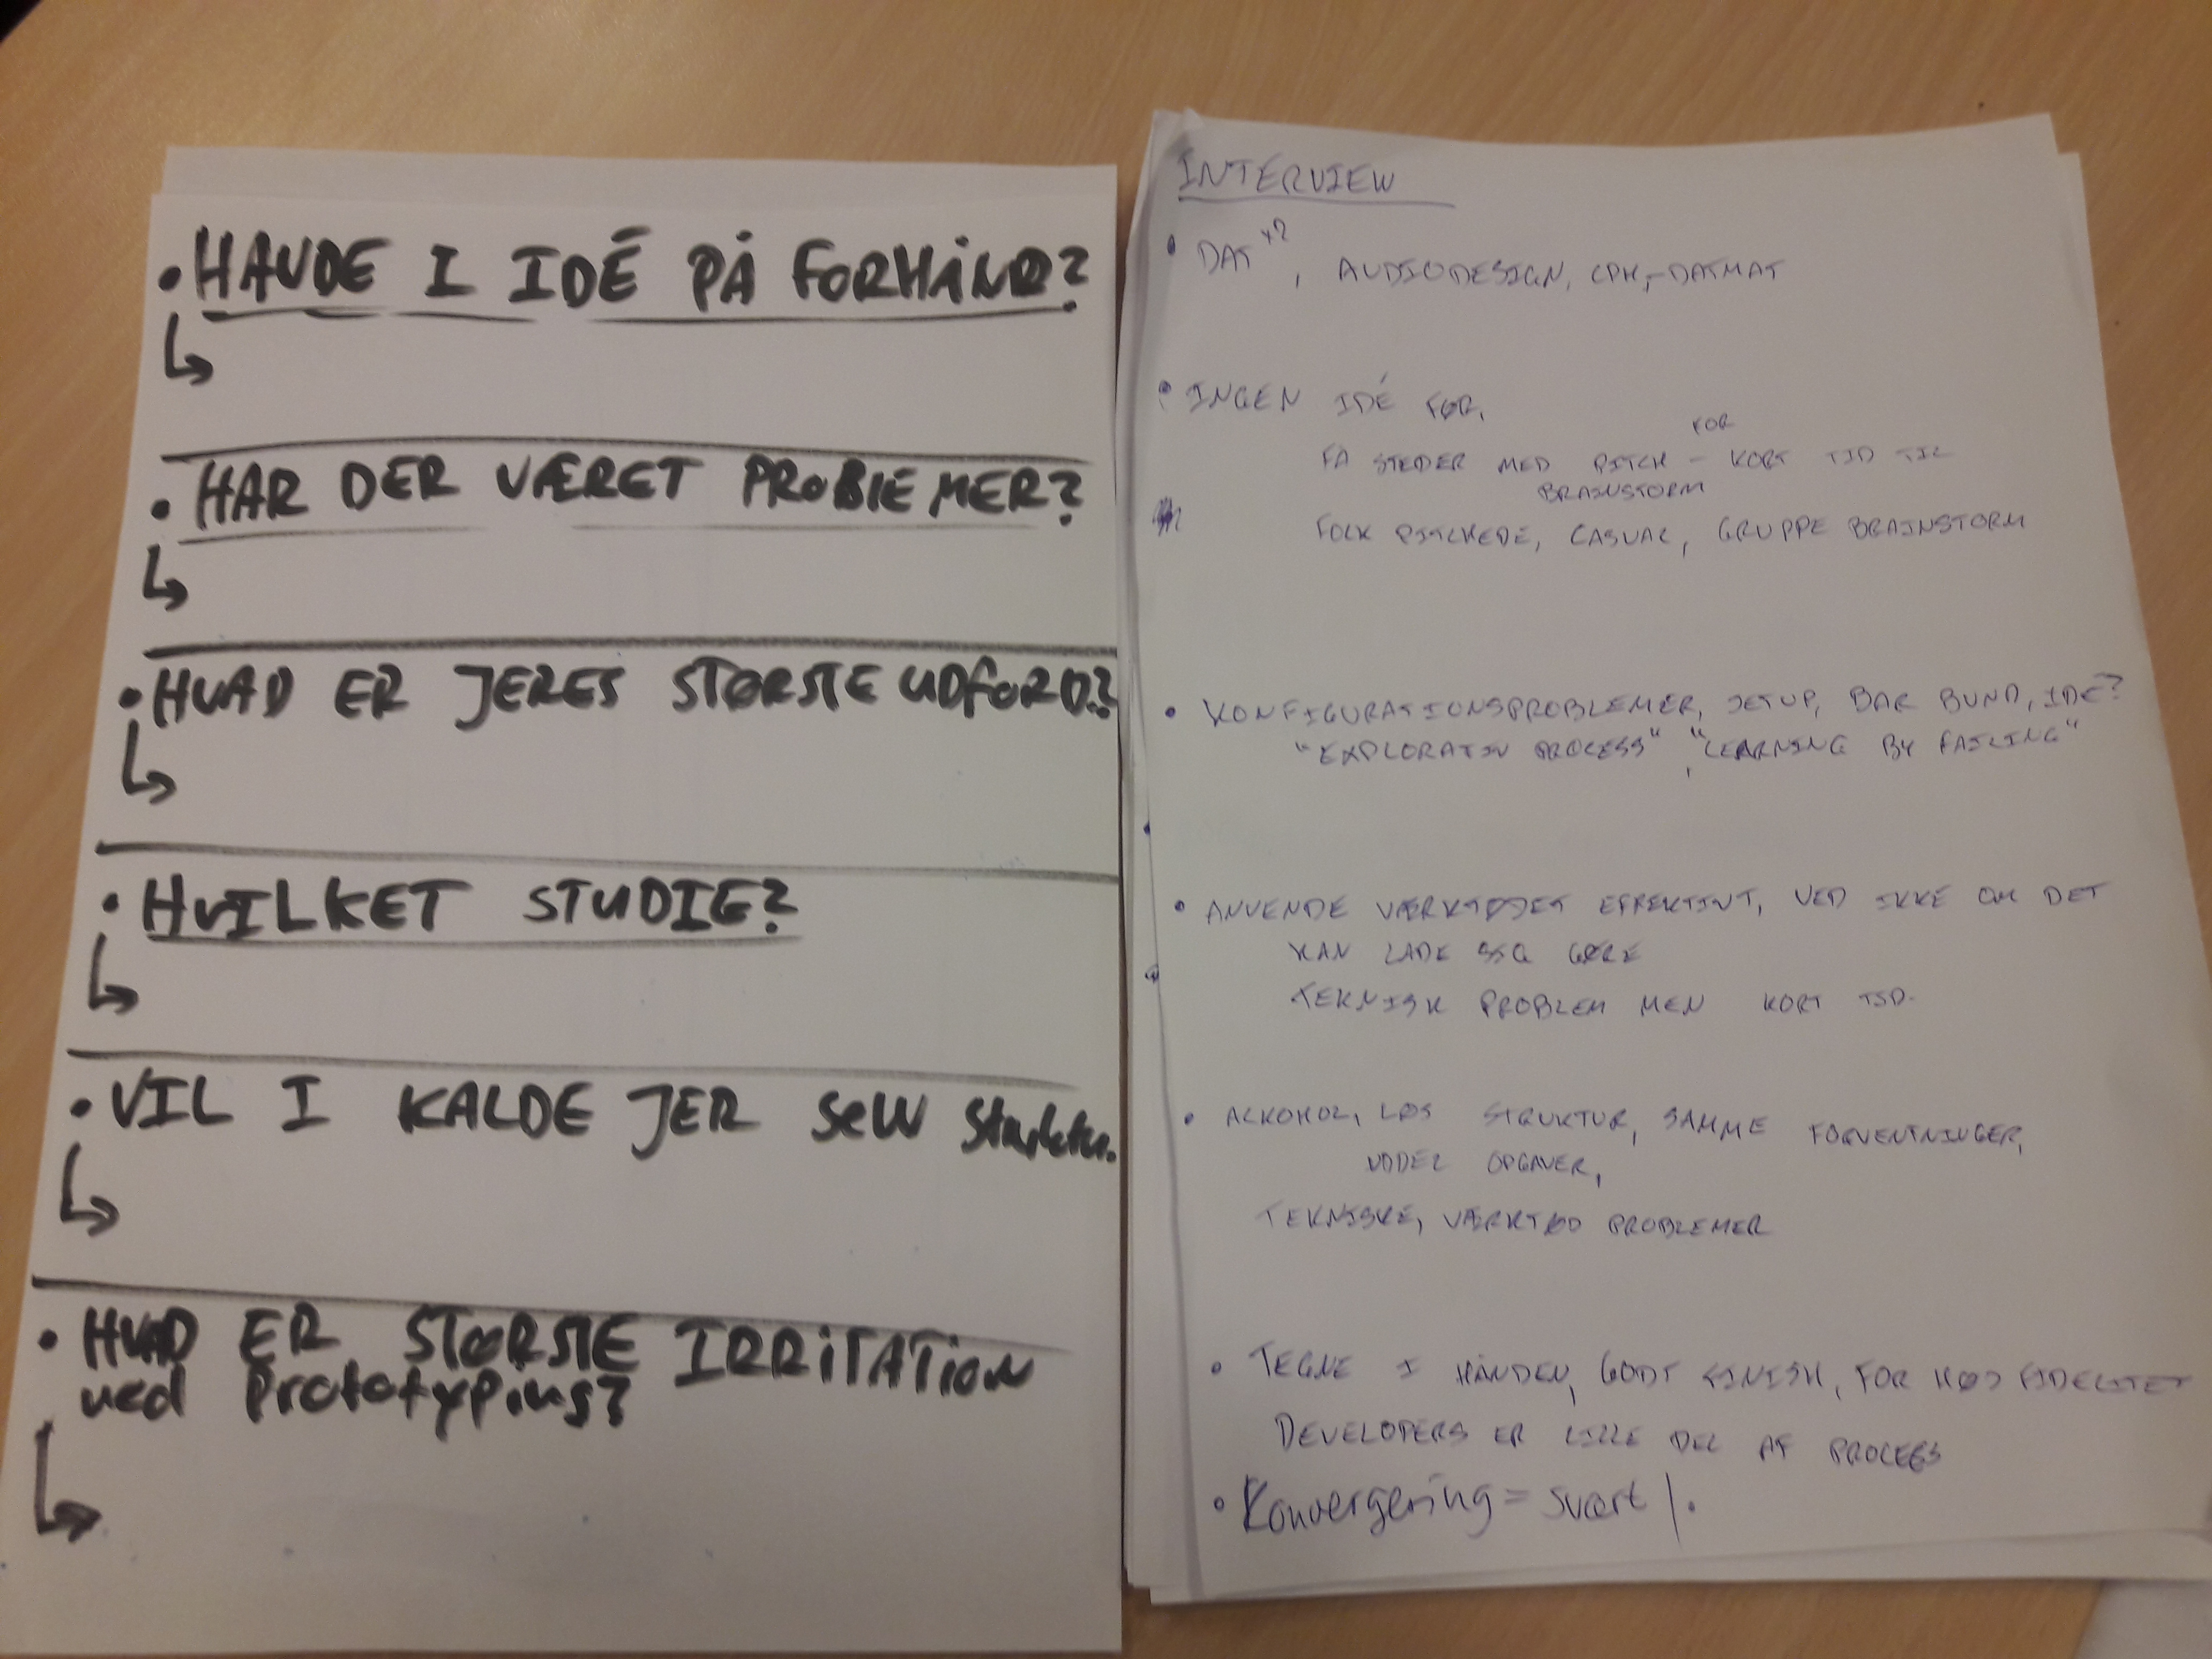 • HAVDE I IDÉ PÅ FORHÅND?
• HAR DER VÆRET PROBLEMER?
• HVAD ER JERES STØRSTE UDFORD.?
• HVILKET STUDIE?
• VIL I KALDE JER SELV
• HVAD ER STØRSTE IRRITATION
ved Prototyping?
INTERVIEW
• DAT x2, AUDIODESIGN, CPH,-DATMAT
• INGEN IDÉ FØR.
FOR
FÅ STEDER MED PITCH – KORT TID TIL
BRAINSTORM
FOLK PITCHEDE, CASUAL, GRUPPE BRAINSTORM
• KONFIGURATIONSPROBLEMER, SETUP, BAR BUND, IDÉ?
"EXPLORATIV PROCESS", "LEARNING BY FAILING"
• ANVENDE VÆRKTØJET EFFEKTIVT, VED IKKE OM DET
KAN LADE SIG GØRE
TEKNISK PROBLEM MEN KORT TID.
• ALKOHOL, LØS STRUKTUR, SAMME FORVENTNINGER,
UDDEL OPGAVER,
TEKNISKE, VÆRKTØJ PROBLEMER
• TEGNE I HÅNDEN, GODT FINISH, FOR HØJ FIDELITET
DEVELOPERS ER LILLE DEL AF PROCESS
• Konvergering = svært